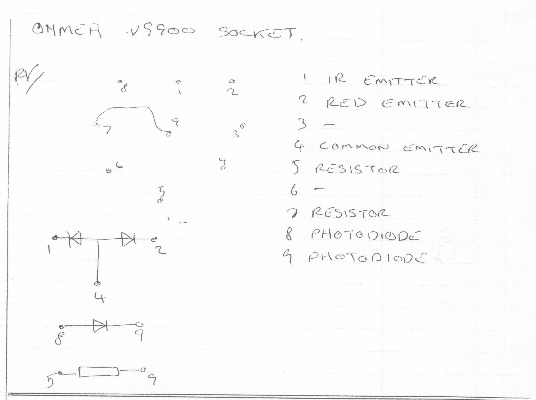 OHMEA VS900 SOCKET.
RV/
8 1 2
7 9 3
6 4
5
1 IR EMITTER
2 RED EMITTER
3 –
4 COMMON EMITTER
5 RESISTOR
6 –
7 RESISTOR
8 PHOTODIODE
9 PHOTODIODE
1 2
4
8 9
5 9